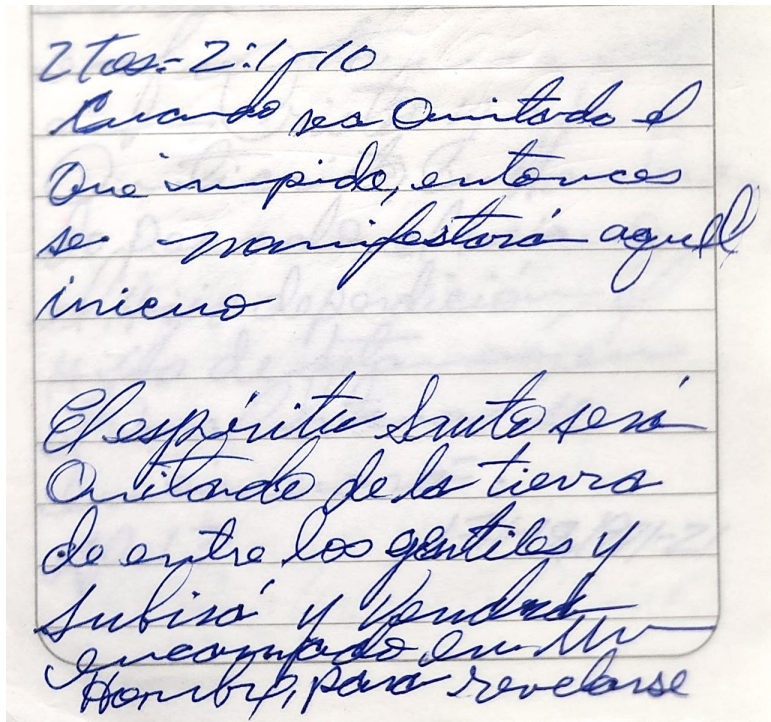 2 Tes = 2:1-10
Cuando sea Quitado el
Que impide, entonces
se manifestará aquell
inicuo
El espíritu Santo será
Quitado de la tierra
de entre los gentiles y
subirá y Vendrá
encarnado en Un
Hombre, para revelarse